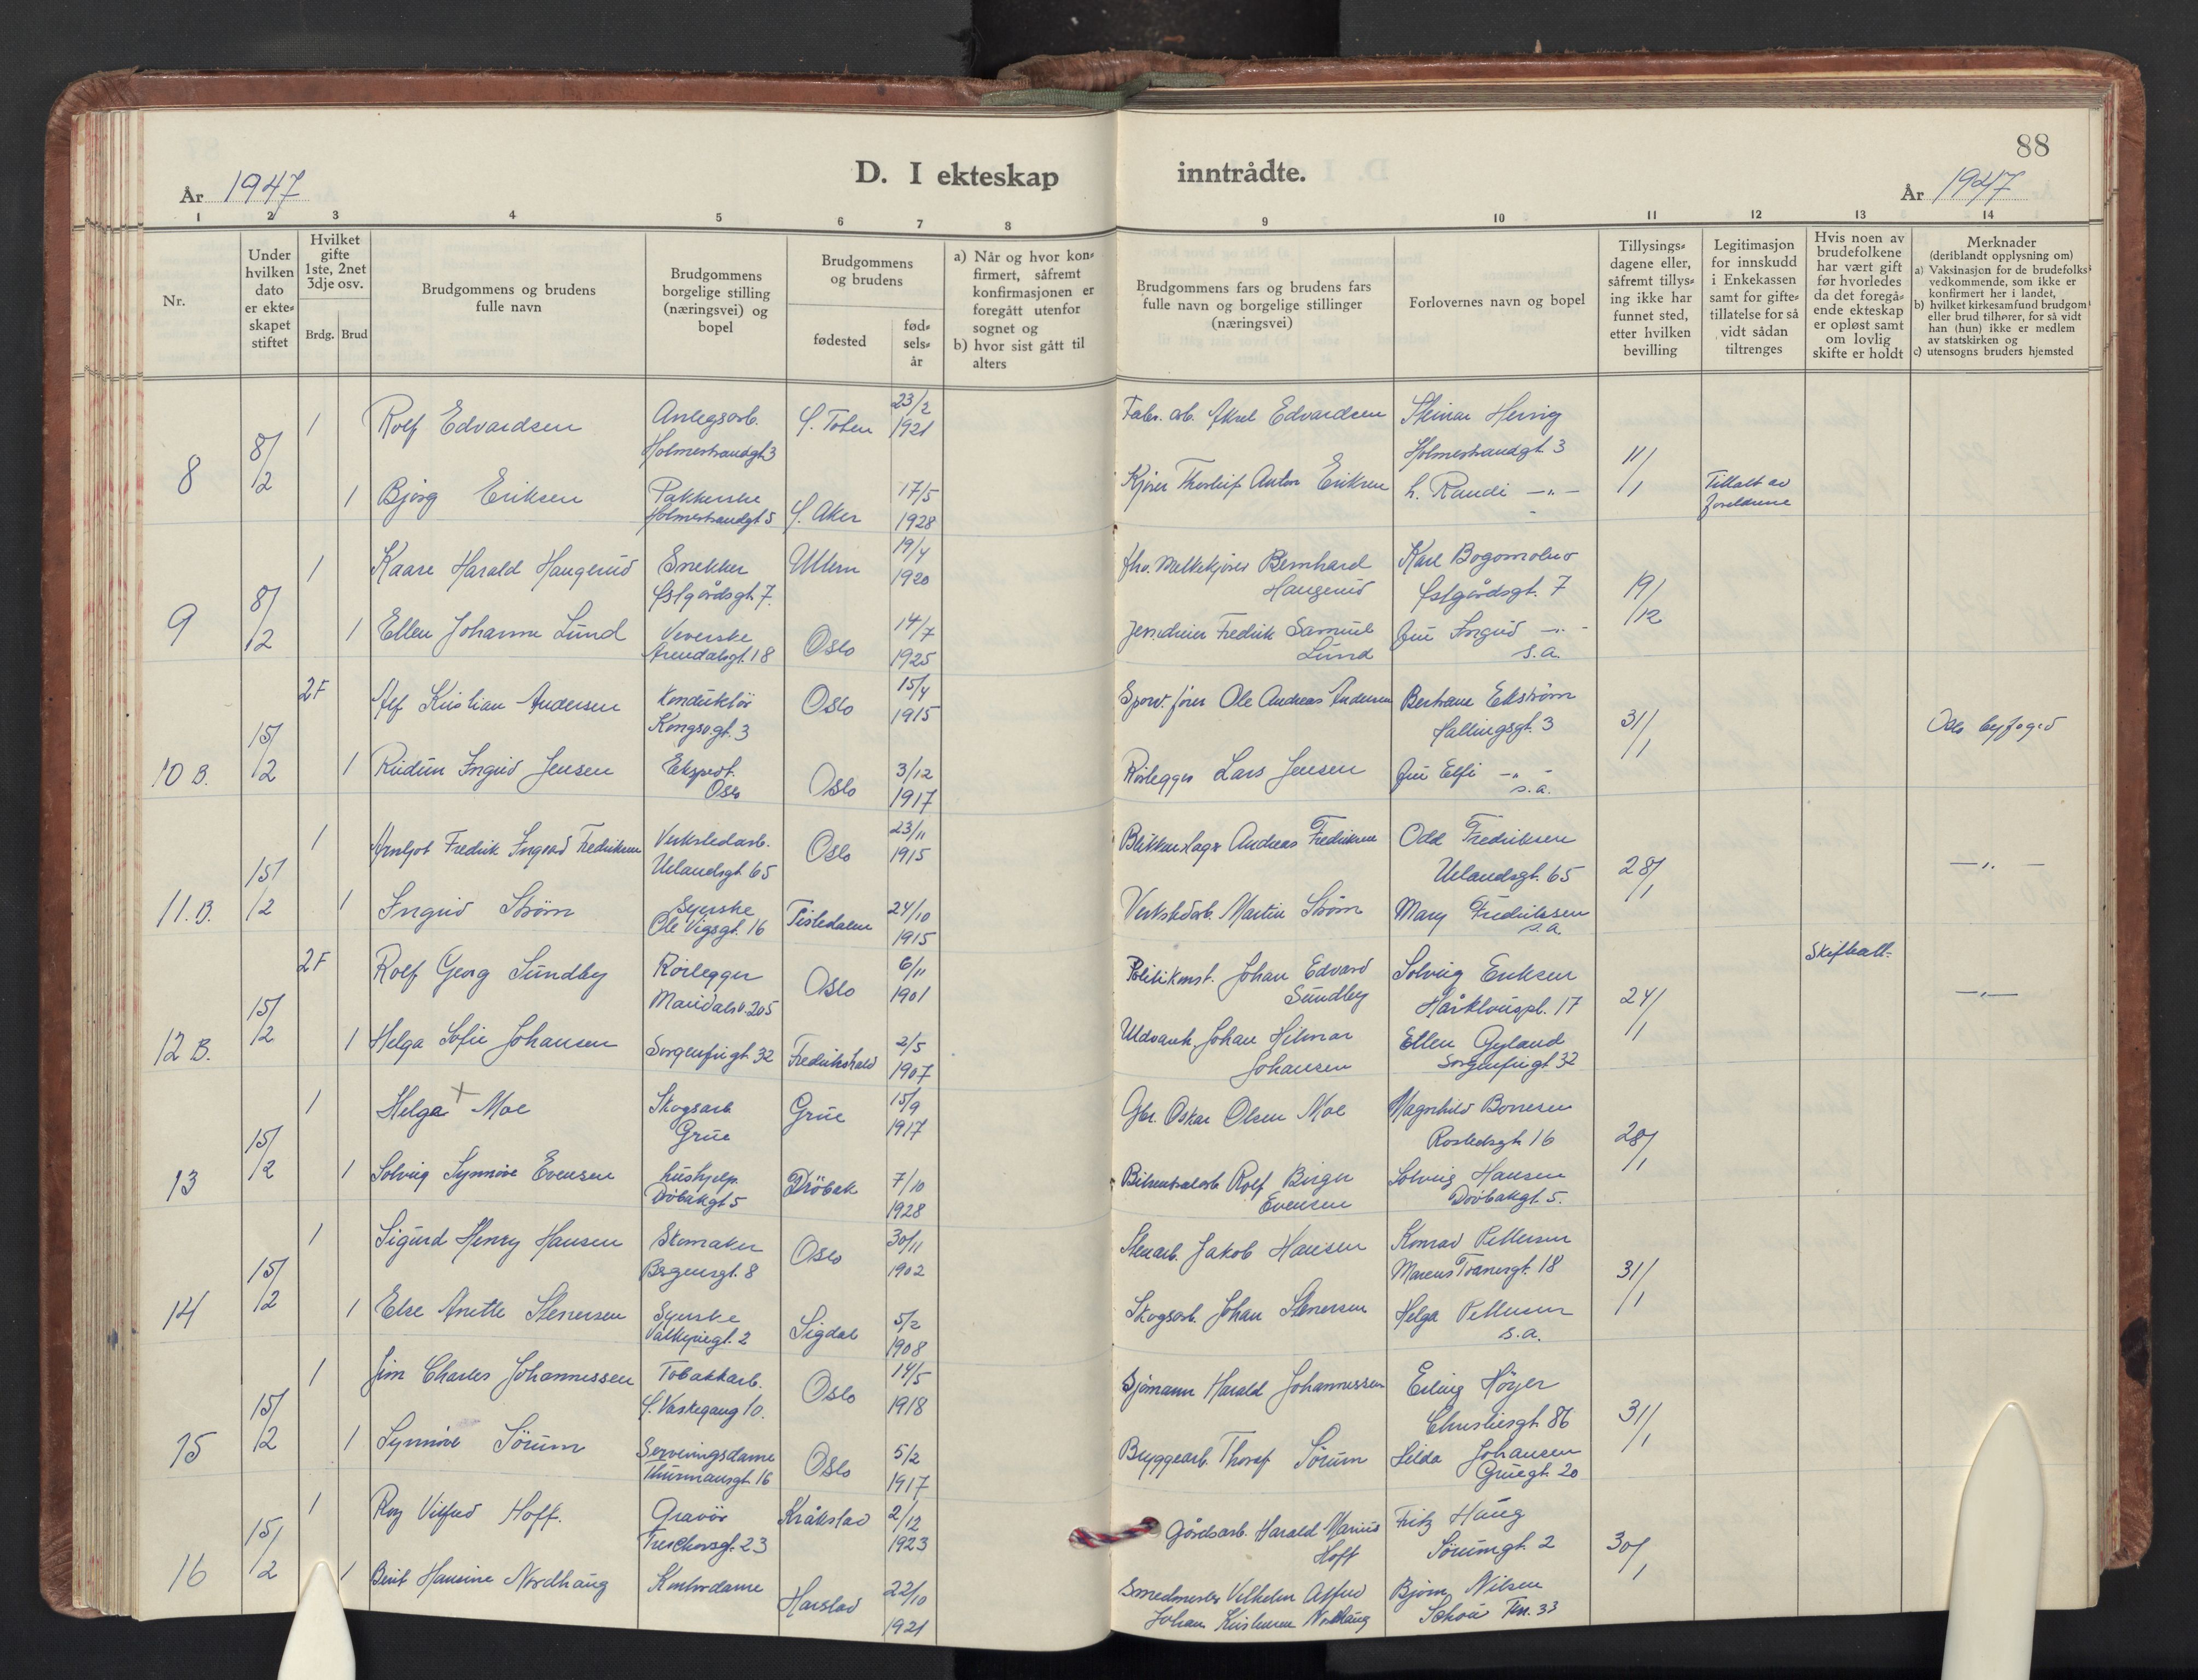 88
D. I ekteskap inntrådte.
År 1947
År 1947
1 2 3 4 5 6 7 8 9 10 11 12 13 14
Nr.
Under hvilken dato er ekteskapet stiftet
Hvilket gifte 1ste, 2net 3dje osv.
Brdg. Brud
Brudgommens og brudens fulle navn
Brudgommens borgelige stilling (næringsvei) og bopel
Brudgommens og brudens
fødested
fødselsår
a) Når og hvor konfirmert, såfremt konfirmasjonen er foregått utenfor sognet og
b) hvor sist gått til alters
Brudgommens fars og brudens fars fulle navn og borgelige stillinger (næringsvei)
Forlovernes navn og bopel
Tillysingsdagene eller, såfremt tillysing ikke har funnet sted, etter hvilken bevilling
Legitimasjon for innskudd i Enkekassen samt for giftetillatelse for så vidt sådan tiltrenges
Hvis noen av brudefolkene har vært gift før hvorledes da det foregående ekteskap er opløst samt om lovlig skifte er holdt
Merknader (deriblandt opplysning om)
a) Vaksinasjon for de brudefolks vedkommende, som ikke er konfirmert her i landet,
b) hvilket kirkesamfund brudgom eller brud tilhører, for så vidt han (hun) ikke er medlem av statskirken og
c) utensogns bruders hjemsted
8 8/2 1 Rolf Edvardsen Anlegsarb. Holmestrandgt 3 Ö. Toten 23/2 1921 Aksel Edvardsen Steinar Hennig Holmestrandgt. 3 11/1
1 Bjørg Eriksen Pakkerske Holmestrandgt 5 Ö. Aker 17/5 1928 Kjører Thorleif Anton Eriksen h. Randi —"— Tillatt av foreldrene
9 8/2 1 Kaare Harald Haugerud Snekker Østgårdsgt. 7. Ullern 19/4 1920 fhv. Melkekjører Bernhard Haugerud Karl Bogomolno Østgårdsgt. 7 19/12
1 Ellen Johanne Lund Veverske Arendalsgt. 18 Oslo 14/7 1925 Jerndreier Fredrik Samuel Lund fru Ingrid —"— s.a.
10 B. 15/2 2F Alf Kristian Andersen Konduktör Kongsv.gt. 3 Oslo 15/4 1915 Sporv.fører Ole Andreas Andersen Bertrane Ekstrøm Hallingsgt. 3 31/1 Oslo byfoged
1 Rudun Ingrid Jensen Eksped. Oslo Oslo 3/12 1917 Rørlegger Lars Jensen fru Elfi —"— s.a.
11. B. 15/2 1 Arnljot Fredrik Ingvard Fredriksen Verkstedarb. Uelandsgt. 65 Oslo 23/11 1915 Blikkenslager Andreas Fredriksen Odd Fredriksen Uelandsgt. 65 28/1 —"—
1 Ingrid Strøm Syerske Ole Vigsgt. 16 Tistedalen 24/10 1915 Verkstedarb. Martin Strøm Mary Fredriksen s.a.
12 B. 15/2 2F Rolf Georg Sundby Rørlegger Maridalsv. 205 Oslo 6/11 1901 Politikonst. Johan Edvard Sundby Solveig Eriksen Hårklougpl. 17 24/1 Skiftealt. —"—
1 Helga Sofie Johansen Sorgenfrigt 32 Fredrikshald 2/5 1907 Johan Hilmar Johansen Ellen Gyland Sorgenfrigt 32
13 15/2 1 Helga + Moe Skogsarb. Grue Grue 15/9 1917 Gbr. Oskar Olsen Moe Magnhild Borresen Rostedsgt. 16 28/1
1 Solveig Synnøve Evensen hushjelp. Drøbakgt 5 Dröbak 7/10 1928 Rolf Birger Evensen Solveig Hansen Drøbakgt. 5.
14 15/2 1 Sigurd Henry Hansen Skomaker Bergensgt. 8 Oslo 30/11 1902 Stenarb. Jakob Hansen Konrad Pettersen Marcus Tranesgt. 18 31/1
1 Else Anette Stenersen Syerske Valkyriegt. 2 Sigdal 5/2 1908 Skogsarb. Johan Stenersen Helga Pettersen s.a.
15 15/2 1 Jim Charles Johannessen Tobakkarb. Ö. Vaskegang 10. Oslo 14/5 1918 Sjømann Harald Johannessen Erling Höyer Christiesgt. 86 31/1
1 Synnøve Sörum Serveringsdame Thurmannsgt. 16 Oslo 5/2 1917 Bryggearb. Thoralf Sörum Hilda Johansen Gruegt. 20
16 15/2 1 Roy Vilfred Hoff. Gravör Treschowsgt. 23 Kråkstad 2/12 1923 Gårdsarb. Harald Marius Hoff Fritz Haug Sörumgt. 2 30/1
1 Berit Hansine Nordhaug Kontordame Harstad 22/10 1921 Smedmester Vilhelm Alfred Johan Kristensen Nordhaug Bjørn Nilsen Schous Ter. 33